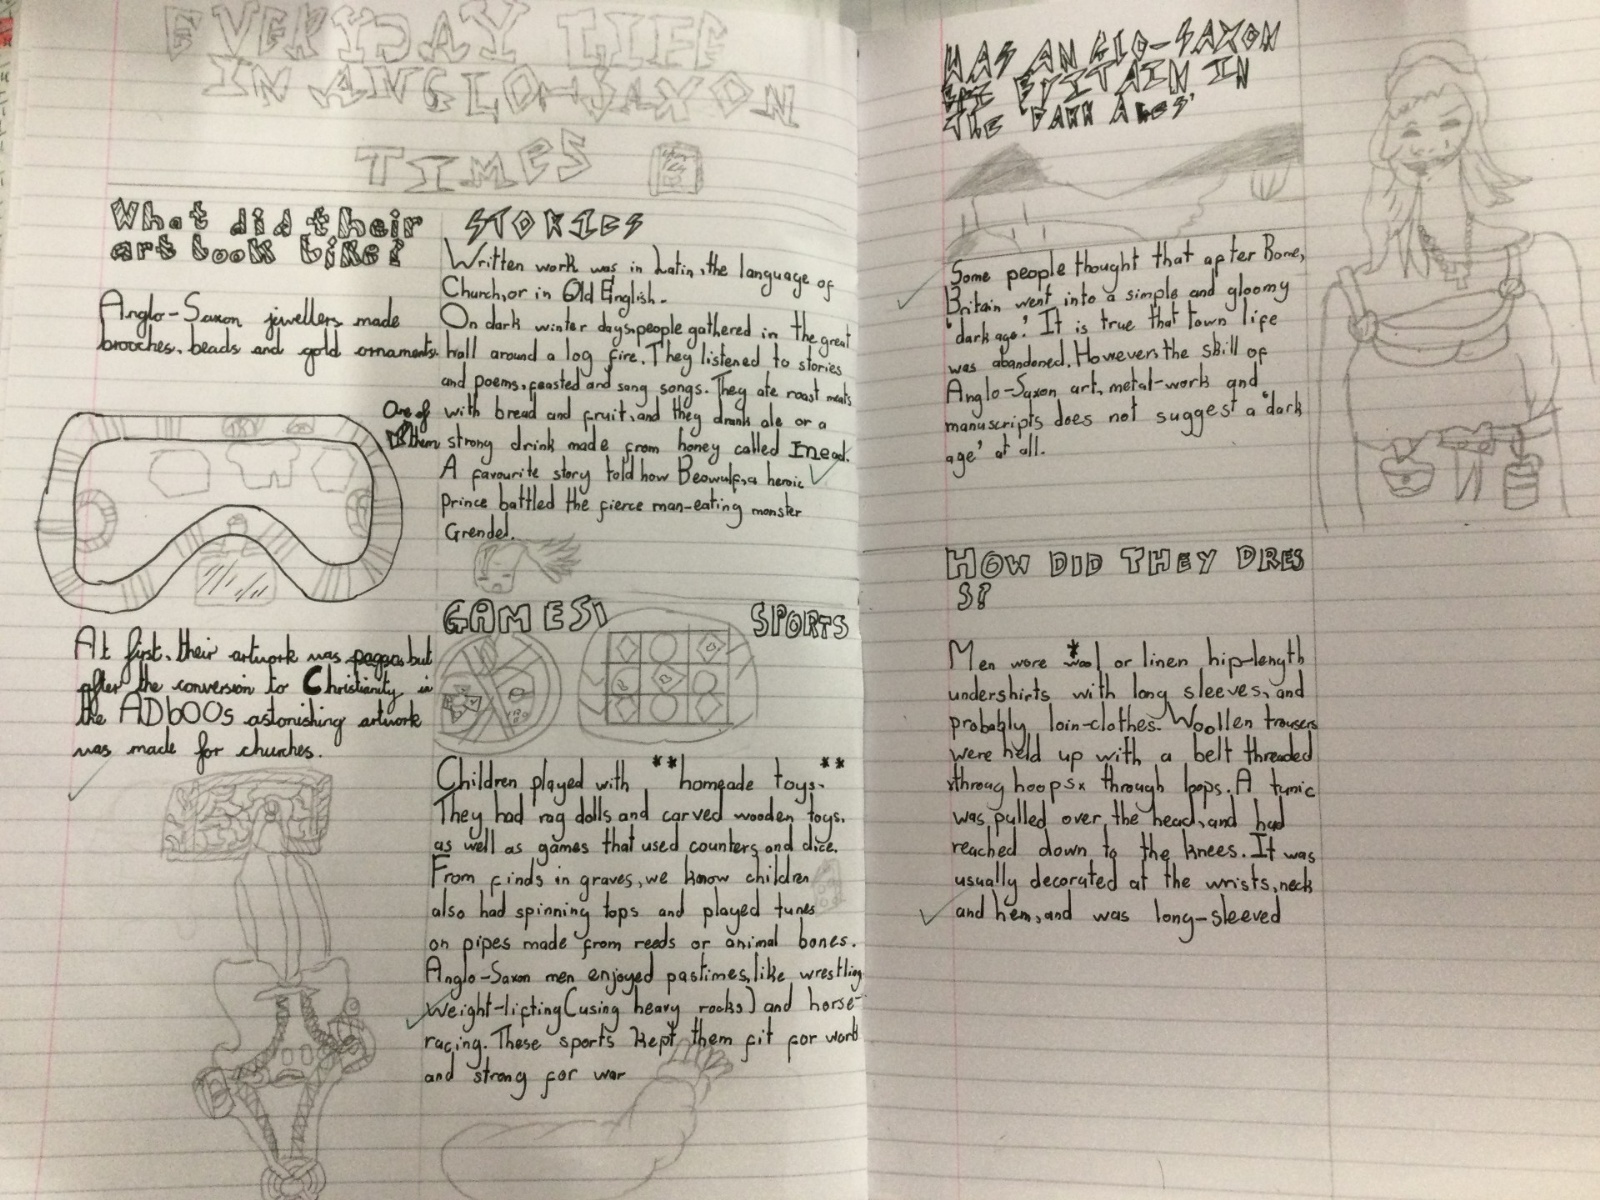 EVERYDAY LIFE
IN ANGLO-SAXON
TIMES
What did their
art look like?
Anglo-Saxon jewellers made
brooches, beads and gold ornaments.
At first, their artwork was pagan but
after the conversion to Christianity in
the AD600s astonishing artwork
was made for churches.
STORIES
Written work was in Latin, the language of
Church, or in Old English.
On dark winter days, people gathered in the great
hall around a log fire. They listened to stories
and poems, feasted and sang songs. They ate roast meats
with bread and fruit, and they drank ale or a
strong drink made from honey called mead.
One of
them
A favourite story told how Beowulf, a heroic
prince battled the fierce man-eating monster
Grendel.
GAMES
SPORTS
Children played with **homeade toys.**
They had rag dolls and carved wooden toys,
as well as games that used counters and dice.
From finds in graves, we know children
also had spinning tops and played tunes
on pipes made from reeds or animal bones.
Anglo-Saxon men enjoyed pastimes, like wrestling
weight-lifting (using heavy rocks) and horse-
racing. These sports kept them fit for work
and strong for war
WAS ANGLO-SAXON
BRITAIN IN
THE DARK AGES'
Some people thought that after Rome,
Britain went into a simple and gloomy
'dark age.' It is true that town life
was abandoned. However, the skill of
Anglo-Saxon art, metal-work and
manuscripts does not suggest a 'dark
age' at all.
HOW DID THEY DRES
S?
Men wore *wool or linen hip-length
undershirts with long sleeves, and
probably loin-clothes. Woollen trousers
were held up with a belt threaded
throug hoopsx through loops. A tunic
was pulled over the head, and had
reached down to the knees. It was
usually decorated at the wrists, neck
and hem, and was long-sleeved